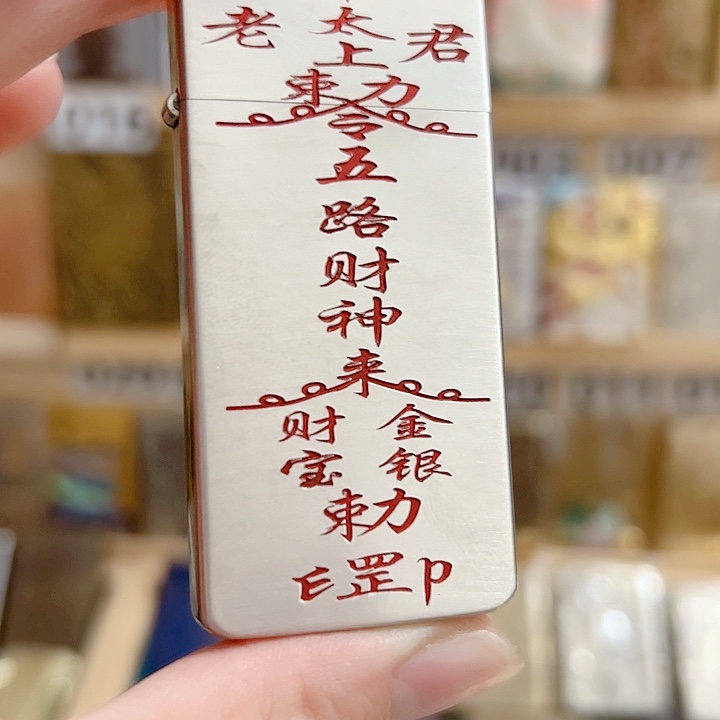 老 太 君
上
敕
令
五
路
财
神
来
财 金
宝 银
敕
罡